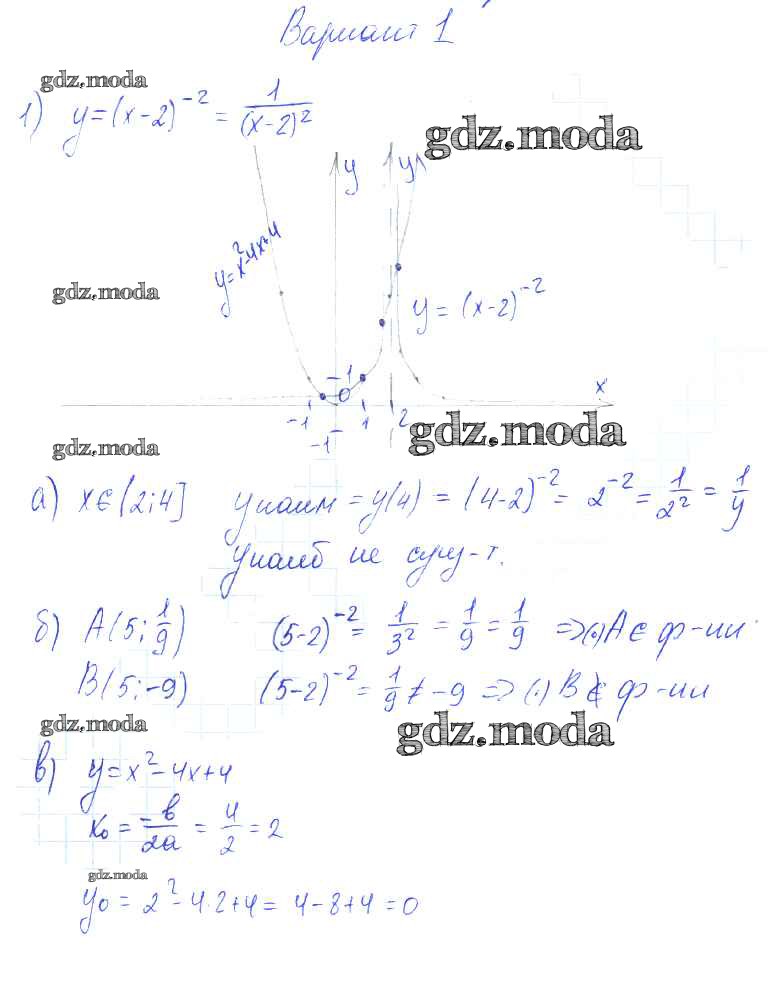 Вариант 1
gdz.moda
1) y=(x-2)⁻² = 1/(x-2)²
gdz.moda
y y
y=x²-4x+4
gdz.moda
y=(x-2)⁻²
-1 0 x
-1 1 2
-1
gdz.moda
gdz.moda
а) x∈(2;4] yнаим = y(4) = (4-2)⁻² = 2⁻² = 1/2² = 1/4
yнаиб не сущ-т.
б) A(5; 1/9) (5-2)⁻² = 1/3² = 1/9 = 1/9 => (·)A∈ ф-ии.
B(5;-9) (5-2)⁻² = 1/9 ≠ -9 => (·)B∉ ф-ии
gdz.moda
gdz.moda
в) y=x²-4x+4
x₀ = -в/2а = 4/2 = 2
gdz.moda
y₀ = 2²-4·2+4 = 4-8+4=0